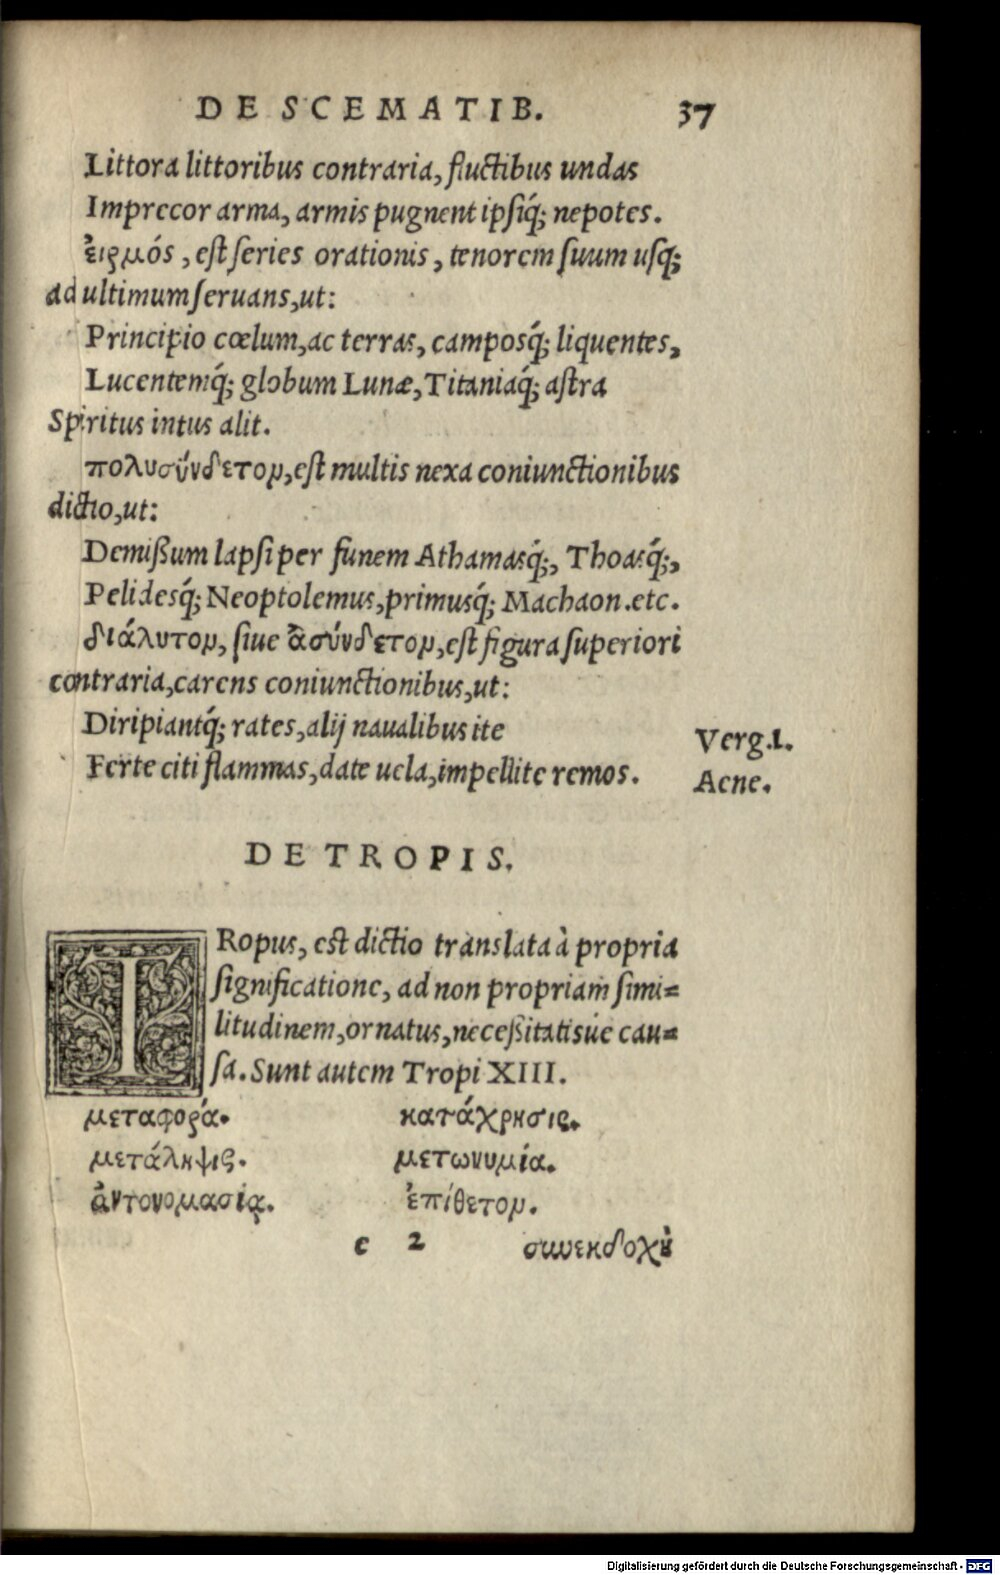 DE SCEMATIB. 37
Littora littoribus contraria, fluctibus undas
Imprecor arma, armis pugnent ipsiq́; nepotes.
εἱρμός, est series orationis, tenorem suum usq;
ad ultimum seruans, ut:
Principio cœlum, ac terras, camposq́; liquentes,
Lucentemq́; globum Lunæ, Titaniaq́; astra
Spiritus intus alit.
πολυσύνδετον, est multis nexa coniunctionibus
dictio, ut:
Demißum lapsi per funem Athamasq́;, Thoasq́;,
Pelidesq́; Neoptolemus, primusq́; Machaon. etc.
διάλυτον, siue ἀσύνδετον, est figura superiori
contraria, carens coniunctionibus, ut:
Diripiantq́; rates, alij naualibus ite
Ferte citi flammas, date uela, impellite remos.
Verg. 1.
Aene.
DE TROPIS.
TRopus, est dictio translata à propria
significatione, ad non propriam simi=
litudinem, ornatus, neceßitatisúe cau=
sa. Sunt autem Tropi XIII.
μεταφορά. κατάχρησις.
μετάληψις. μετωνυμία.
ἀντονομασία. ἐπίθετον.
c 2 συνεκδοχὴ
Digitalisierung gefördert durch die Deutsche Forschungsgemeinschaft - DFG